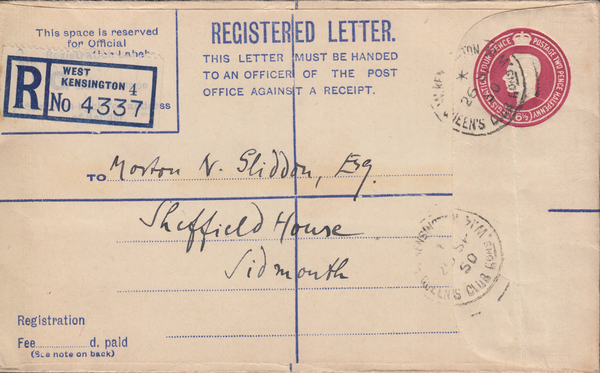 This space is reserved
for Official
REGISTERED LETTER.
THIS LETTER MUST BE HANDED
TO AN OFFICER OF THE POST
OFFICE AGAINST A RECEIPT.
R
WEST
KENSINGTON 4
No 4337
ss
REGISTRATION FOUR PENCE POSTAGE TWO PENCE HALFPENNY
6½
QUEEN'S CLUB
TO Morton N. Sliddon, Esq.
Sheffield House
Sidmouth
KENSINGTON
50
QUEEN'S CLUB
Registration
Fee d. paid
(See note on back)